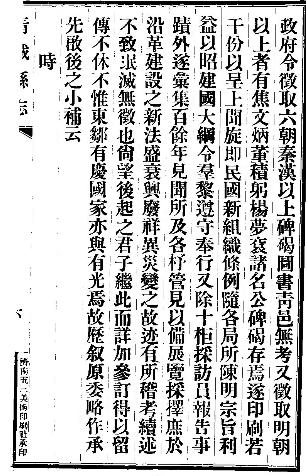 政府令徵取六朝秦漢以上碑碣圖書青邑無考又徵取明朝
以上者有焦文炳董積躬楊夢袞諸名公碑碣存焉遂印刷若
干份以呈上聞旋即民國新組織條例隨各局所陳明宗旨利
益以昭建國大綱令羣黎遵守奉行又除十柜採訪員報告事
蹟外遂彙集百餘年見聞所及各抒管見以備展覽採擇庶於
沿革建設之新法盛衰興廢祥異災變之故迹有所稽考續述
不致泯滅無徵也尙望後起之君子繼此而詳加參訂得以留
傳不休不惟東鄒有慶國家亦與有光焉故歷叙原委略作承
先啟後之小補云
時
青城縣志
濟南五三美術印刷社承印